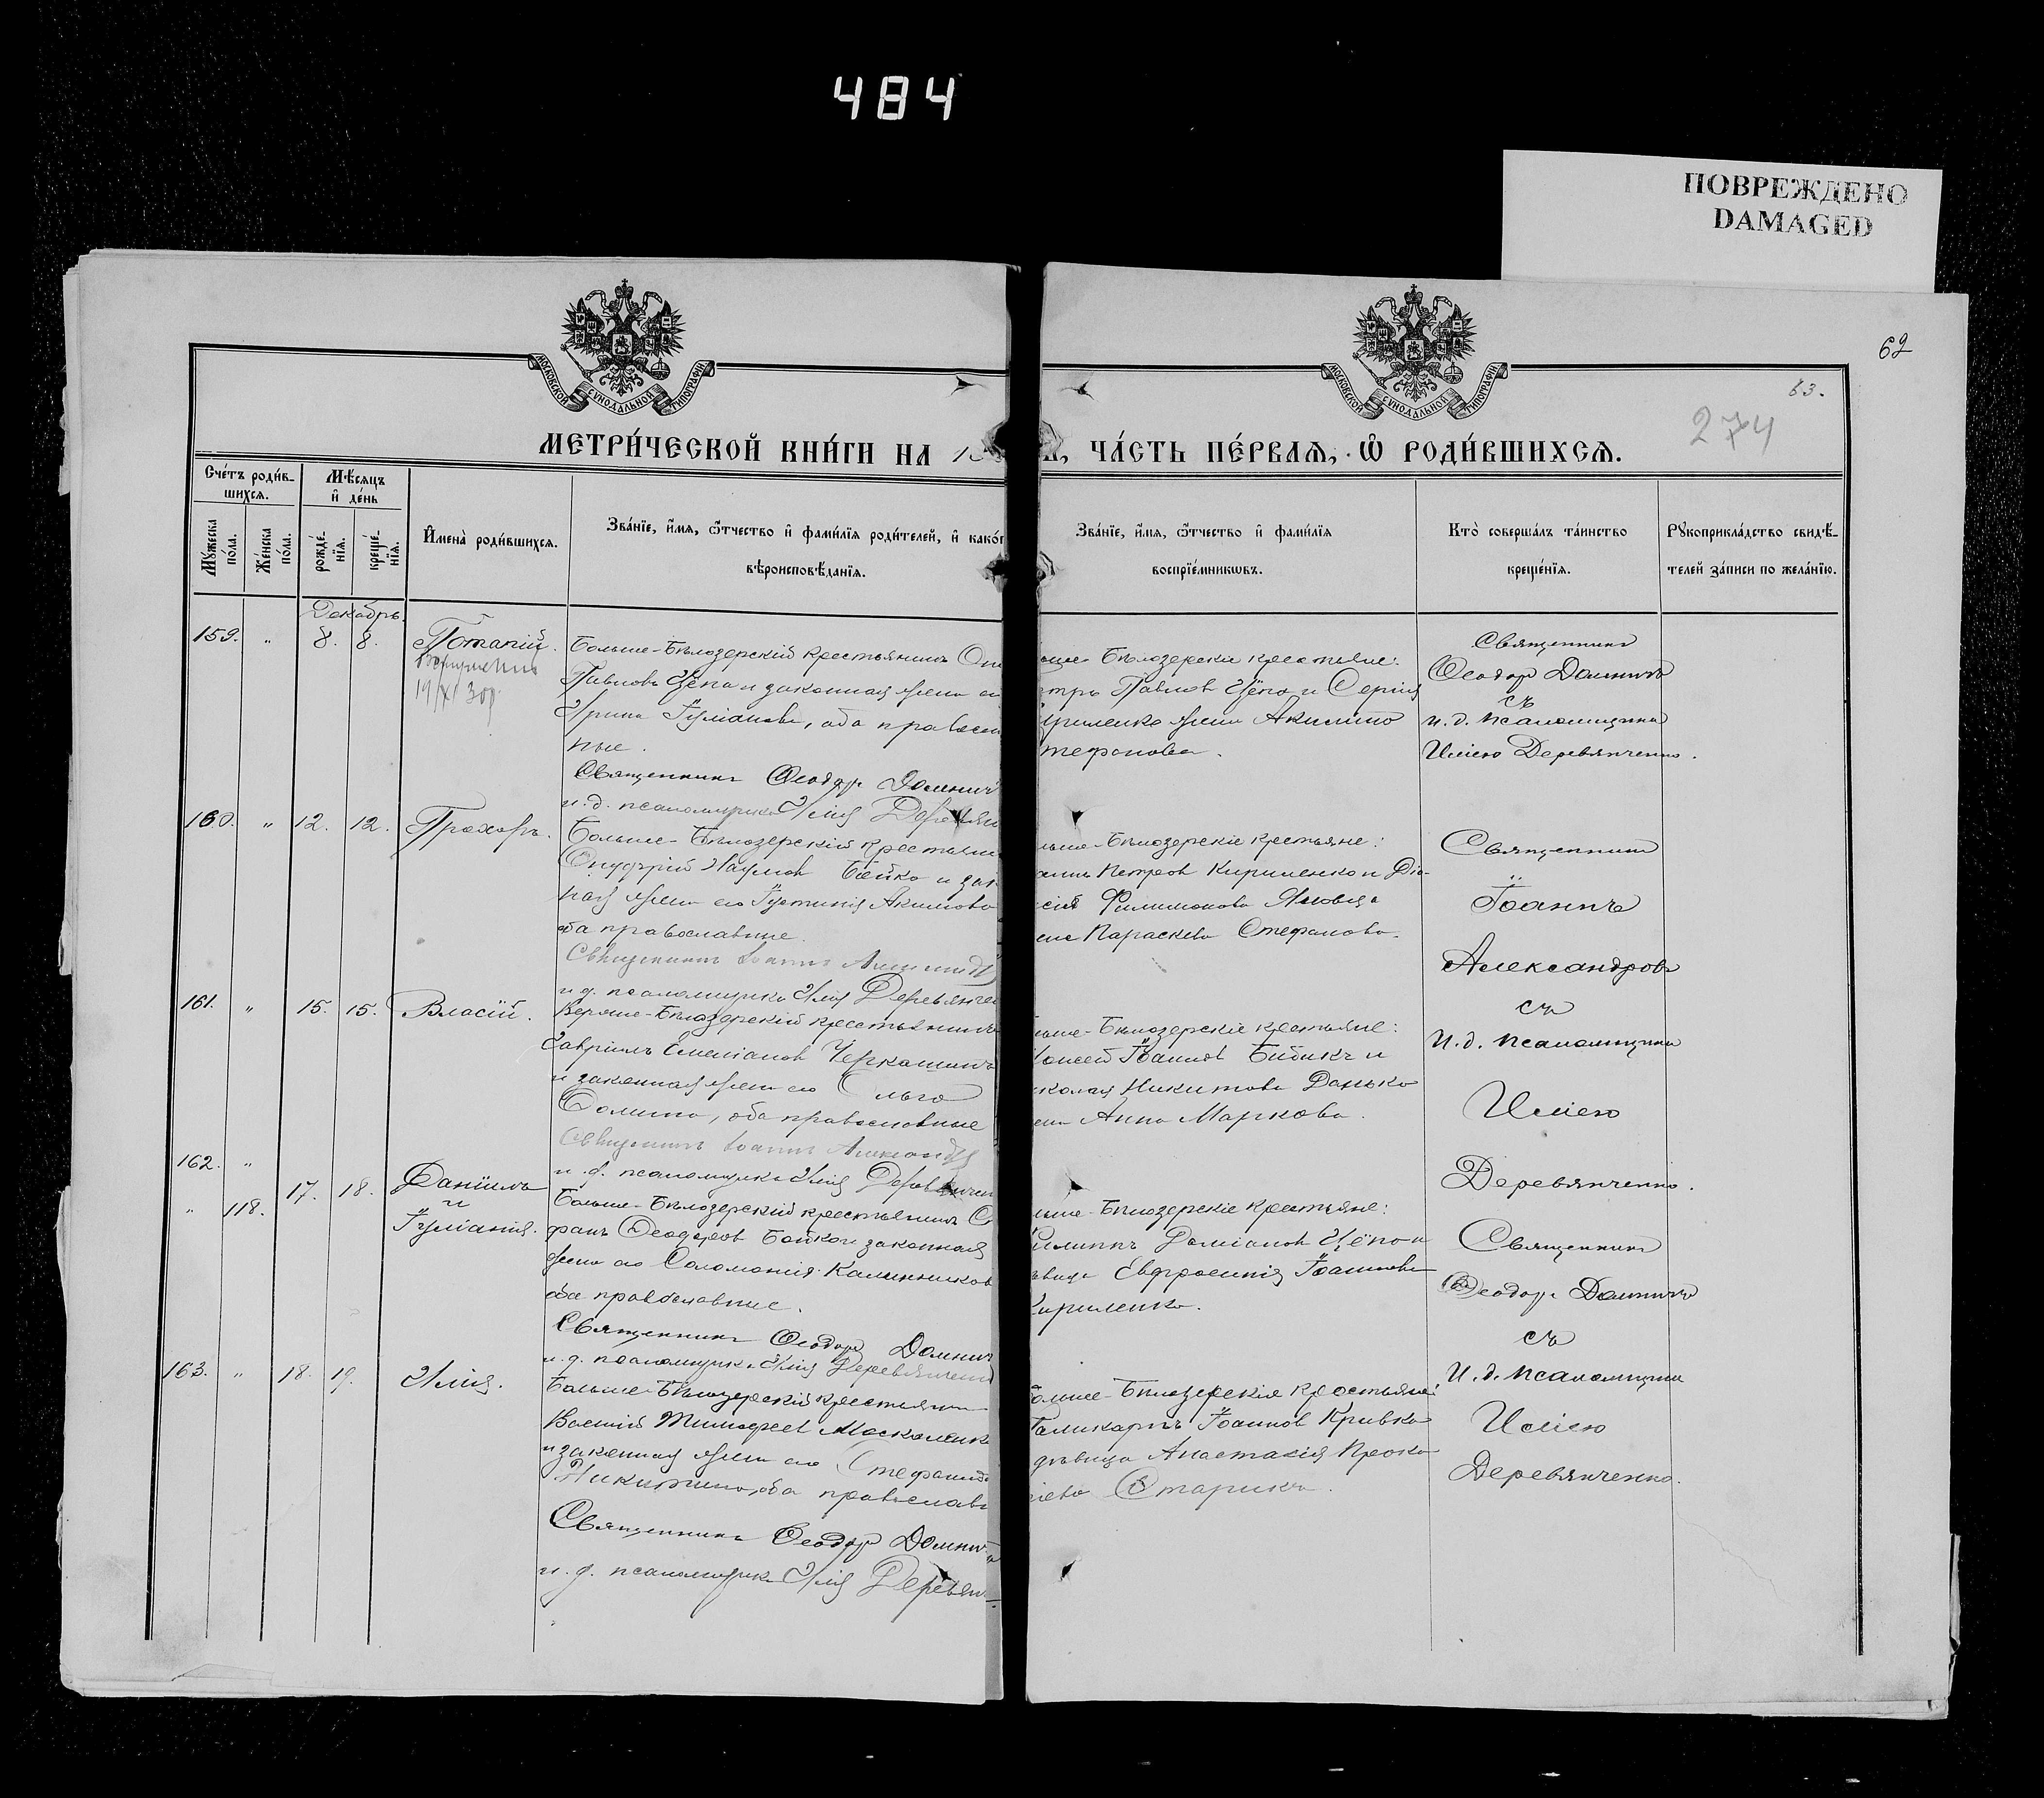 484
ПОВРЕЖДЕНО
DAMAGED
МОСКОВСКОЙ СѴНОДАЛЬНОЙ ТИПОГРАФІИ
МОСКОВСКОЙ СѴНОДАЛЬНОЙ ТИПОГРАФІИ
62
63.
274
МЕТРИ́ЧЕСКОЙ КНИ́ГИ НА 18
ЧА́СТЬ ПЕ́РВАЯ, Ѿ РОДИ́ВШИХСЯ.
Сче́тъ роди́в-
шихся.
Мѣ́сяцъ
и҆ де́нь
Мꙋ́жеска по́ла.
Же́нска по́ла.
рожде́-
нїя.
креще́-
нїя.
И҆мена̀ роди́вшихся.
Зва́нїе, и҆́мя, ѻ҆́тчество и҆ фами́лїя роди́телей, и҆ како́г
вѣроисповѣ́данїя.
Зва́нїе, и҆́мя, ѻ҆́тчество и҆ фами́лїя
воспрїе́мникωвъ.
Кто̀ соверша́лъ та́инство
креще́нїя.
Рꙋкоприкла́дство свидѣ́-
телей за́писи по жела́нїю.
Декабрь.
159. " 8. 8. Потапій.
Больше-Бѣлозерскій крестьянинъ
Павловъ Цёпа и законная жена
Ирина Гуліанова, оба правосла
ные.
Священникъ Ѳеодоръ Домнич
и. д. псаломщика Илія Деревян
ьше-Бѣлозерскіе крестьяне:
тръ Павловъ Цёпа и Сергія
ириленко жена Акилина
тефанова.
Священникъ
Ѳеодоръ Домничъ
съ
и. д. псаломщика
Иліею Деревянченко.
160. " 12. 12. Прохоръ.
Больше-Бѣлозерскій крестьяни
Онуфрій Наумов Бойко и зак
ная жена его Іустинія Акимова
оба православные.
Священникъ Іоаннъ Александр
и. д. псаломщика Илія Деревянче
льше-Бѣлозерскіе крестьяне:
Петров Кириленко и Діо-
сія Филимонова Яковца
ена Параскева Стефанова.
Священникъ
Іоаннъ
Александровъ
съ
и. д. псаломщика
Иліею
Деревянченко.
161. " 15. 15. Власій.
Верхне-Бѣлозерскій крестьянинъ
Гавріилъ Емеліанов Черкашинъ
и законная жена его Ольга
Фомина, оба православные
Священникъ Іоаннъ Александр
и. д. псаломщика Илія Деревянчен
ьше-Бѣлозерскіе крестьяне:
Моисей Іоаннов Бибикъ и
иколая Никитова Данько
ена Анна Маркова.
162. "
" 118. 17. 18. Даніилъ
и
Іуліанія.
Больше-Бѣлозерскій крестьянинъ С
фанъ Ѳеодоров Бойко и законная
жена его Соломонія Калинников
оба православные.
Священникъ Ѳеодоръ Домнич
и. д. псаломщика Илія Деревянченко
ьше-Бѣлозерскіе крестьяне:
Филиппъ Даміанов Цёпа и
ѣвица Евфросинія Іоаннова
Кириленко.
Священникъ
Ѳеодоръ Домничъ
съ
И. д. псаломщика
Иліею
Деревянченко.
163. " 18. 19. Илія.
Больше-Бѣлозерскій крестьянин
Василій Тимофеев Москаленко
и законная жена его Стефанида
Никитина, оба православн
Священникъ Ѳеодоръ Домнич
и. д. псаломщика Илія Деревян
ольше-Бѣлозерскіе крестьяне:
Поликарпъ Іоаннов Кривко
дѣвица Анастасія Проко
іева Старикъ.